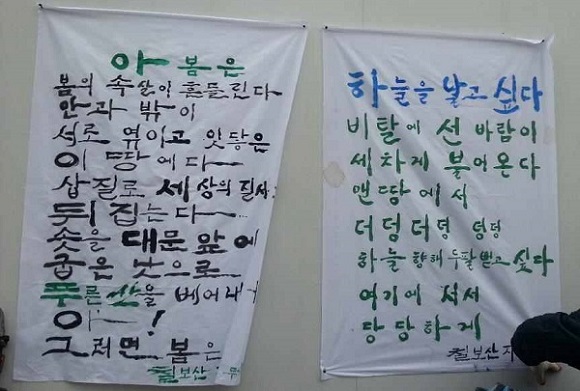 아 봄은
봄의 속살이 흔들린다
안과 밖이
서로 엮이고 잇닿은
이 땅에다
삽질로 세상의 질서
뒤집는다
솟을대문 앞에
굽은 낫으로
푸른 산을 베어내
아~!
그러면 봄은
칠보산
하늘을 날고 싶다
비탈에 선 바람이
세차게 불어온다
맨땅에서
더덩더덩 덩덩
하늘 향해 두팔 벌리고 싶다
여기에 서서
당당하게
칠보산 지